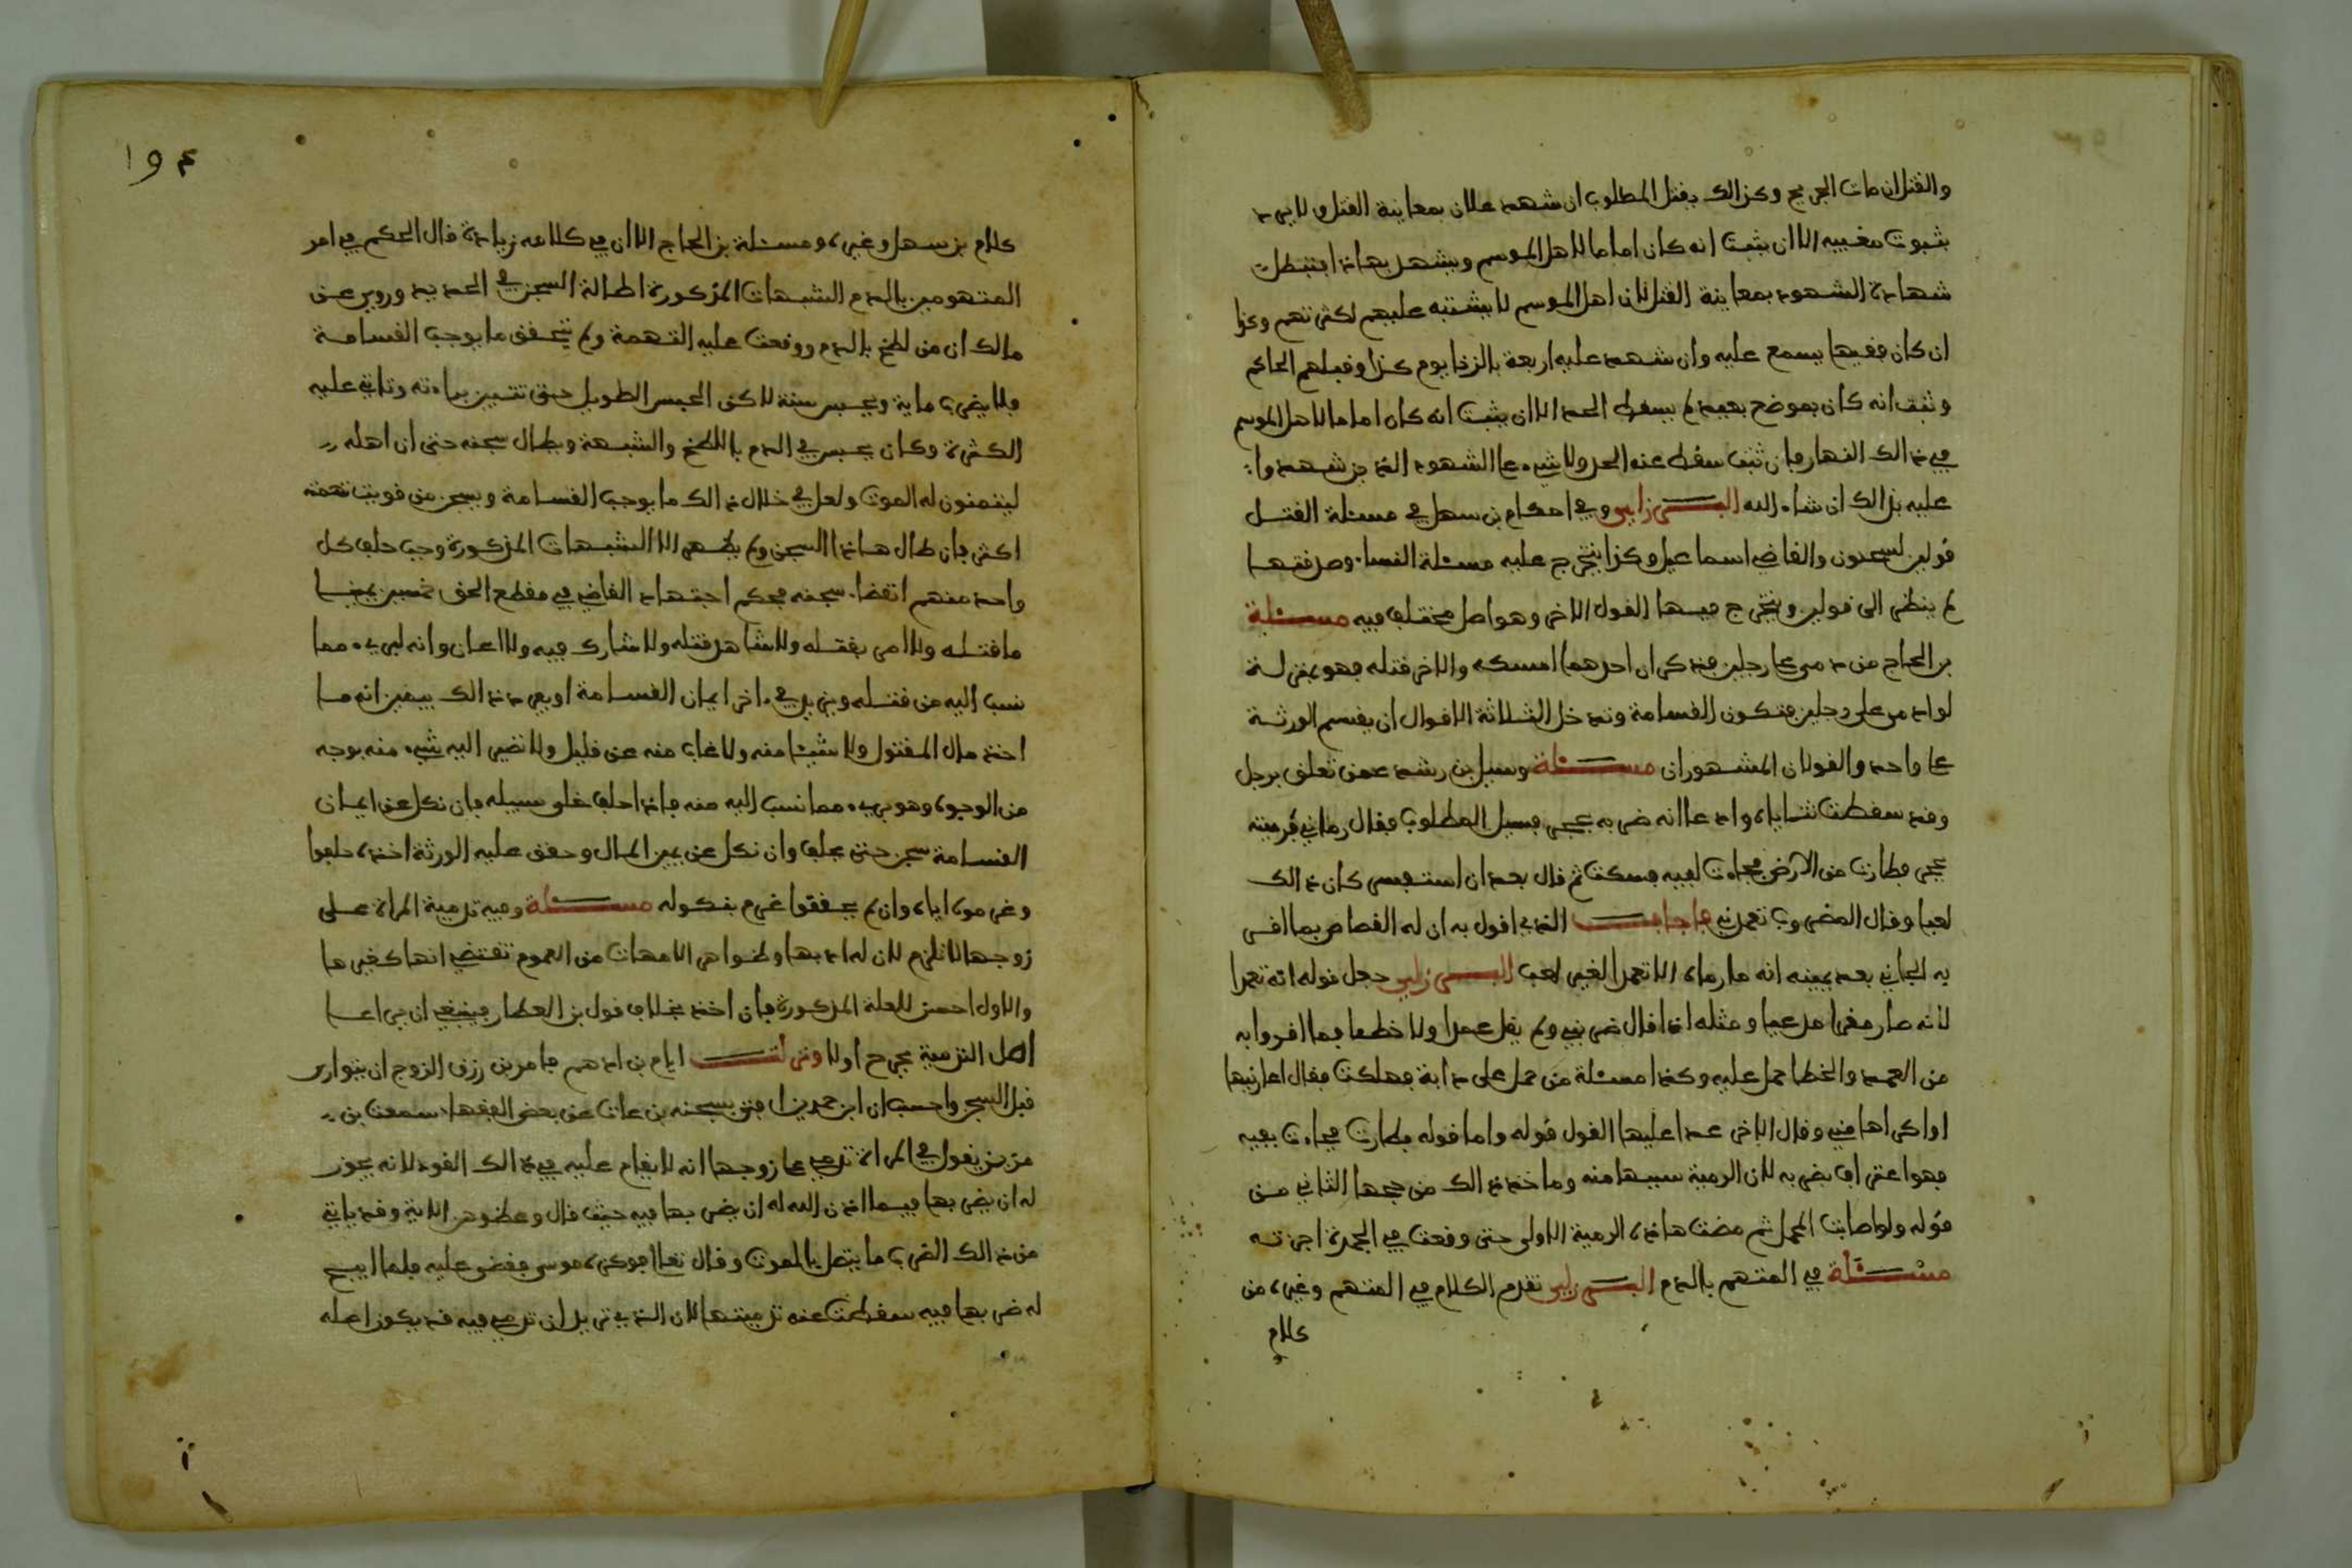 والقتل ان مات الجريح وكذالك يقتل المطلوب ان شهد عدلان بمعاينة القتل ولا يرد
بثبوت مغيبه الا ان يثبت انه كان اماما لاهل الموسم ويشهد بهاذا فتبطل
شهادة الشهود بمعاينة القتل لان اهل الموسم لا يشتبه عليهم لكثرتهم وكذا
ان كان فقيها يسمع عليه وان شهد عليه اربعة بالزنا يوم كذا وقبلهم الحاكم
وثبت انه كان بموضع بعيد لم يسقط الحد الا ان يثبت انه كان اماما لاهل الموسم
في ذالك النهار فان ثبت سقط عنه الحد ولا شيء على الشهود الذين شهدوا
عليه بذالك ان شاء الله البرزلي وفي احكام بن سهل في مسئلة القتل
قولين لسحنون والقاضي اسماعيل وكذا يتخرج عليه مسئلة النساء وصرفتها
لم ينظر الى قولين ويتخرج فيها القول الاخر وهو اصل مختلف فيه مسئلة
بن الحاج من دمى على رجلين فذكر ان احدهما امسكه والاخر قتله فهو بمنزلة
لو ادمى على رجلين فتكون القسامة وتدخل الثلاثة الاقوال ان يقسم الورثة
على واحد والقولان المشهوران مسئلة وسيل بن رشد عمن تعلق برجل
وقد سقطت ثناياه وادعا انه ضربه بحجر فسيل المطلوب فقال رماني فرميته
بحجر فطارت من الارض فجاءت لفيه فسكت ثم قال بعد ان استفسر كان ذالك
لعبا وقال المضروب تعمدني فاجاب الذي اقول به ان له القصاص بما اقر
به الجاني بعد يمينه انه ما رماه الا تعمدا لغير لعب البرزلي جعل قوله انه تعمدا
لانه صار مقرا مدعيا ومثله اذا قال ضربني ولم يقل عمدا ولا خطئا فما اقروا به
من العمد والخطا حمل عليه وكذا مسئلة من حمل على دابة فهلكت فقال اعارنيها
او اكراها مني وقال الاخر عدا عليها القول قوله واما قوله فطارت فجاءت بفيه
فهو اعتراف بضربه لان الرمية سببها منه وماخذ ذالك من حجها الثاني من
قوله ولو اصابت المحمل ثم مضت هاذه الرمية الاولى حتى وقعت في الجمرة اجزته
مسئلة في المتهم بالدم البرزلي تقدم الكلام في المتهم وغيره من
كلام
١٩٤
كلام بن سهل وغيره ومسئلة بن الحاج الا ان في كلامه زيادة قال الحكم في امر
المتهومين بالدم الشبهات المذكورة اطالة السجن في الحديد وروي عن
مالك ان من لطخ بالدم ووقعت عليه التهمة ولم يتحقق ما يوجب القسامة
فلا يضرب ماية ويحبس سنة لاكن الحبس الطويل حتى تتبين براءته وتاتي عليه
الكثرة وكان يحبس في الدم باللطخ والشبهة ويطال سجنه حتى ان اهله
ليتمنون له الموت ولعل في خلال ذالك ما يوجب القسامة ويسجن من قويت تهمته
اكثر فان طال هاذا السجن ولم يظهر الا الشبهات المذكورة وجب حلف كل
واحد منهم انقضاء سجنه فحكم اجتهاد القاضي في مقطع الحق خمسين يمينا
ما قتله ولا امر بقتله ولا شاهد قتله ولا شارك فيه ولا اعان وانه لبريء مما
نسب اليه من قتله ويزيد في اخر ايمان القسامة او بعد ذالك بيمين انه ما
اخذ مال المقتول ولا شيئا منه ولا غاب منه عن قليل ولا تصير اليه شيء منه بوجه
من الوجوه وهو بريء مما نسب اليه منه فاذا حلف خلي سبيله فان نكل عن ايمان
القسامة سجن حتى يحلف وان نكل عن يمين المال وحقق عليه الورثة اخذه حلفوا
وغرموه اياه وان لم يحققوا غرم بنكوله مسئلة وفيه تدمية المراة على
زوجها لا تلزم لان له ادبها ولظواهر الامهات من العموم تقتضي انها كغيرها
والاول احسن للعلة المذكورة فان اخذ بخلاف قول بن العطار فينبغي ان يراعا
اصل التدمية بجرح اولا ونزلت ايام بن ادهم فامر بن رزق الزوج ان يتوارى
قبل السجن واحسب ان ابن حمدين افتى بسجنه بن عات عن بعض الفقهاء سمعت بن
مزين يقول في المراة تدعي على زوجها انه لا يقام عليه في ذالك القود لانه يجوز
له ان يضربها فيما اذن الله له ان يضربها فيه حيث قال وعظوهن الاية وقد ياتي
من ذالك الضرب ما يتصل بالموت وقال تعلا فوكزه موسى فقضى عليه فلما ابيح
له ضربها فيه سقطت عنه تدميتها لان الذي تريد ان تدعي فيه قد يكون اصله